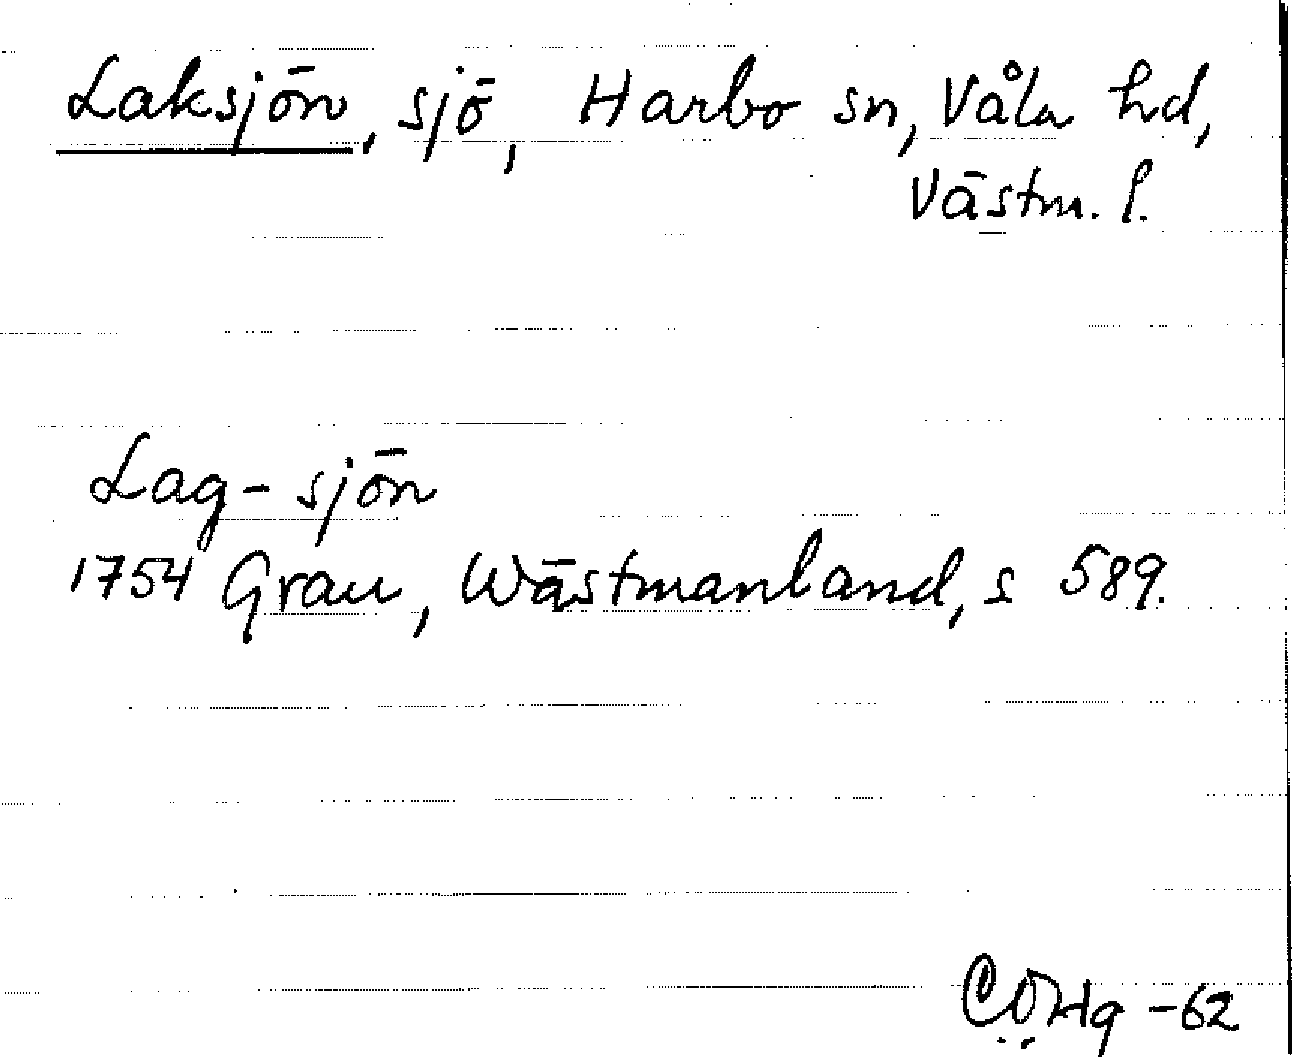 Laksjön, sjö, Harbo sn, Våla hd,
Västm. l.
Lag-sjön
1754 Grau, Wästmanland, s 589.
-62